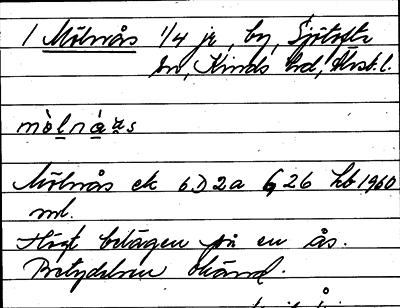 1 Mölnrås 1/4 jr, by, Sjötofta
sn, Kinds hd, Älvsb. l.
mòlnå̀ːs
Mölnås ek 6D2a G26 hb 1960
ml.
Högt belägen på en ås.
Betydelsen okänd.